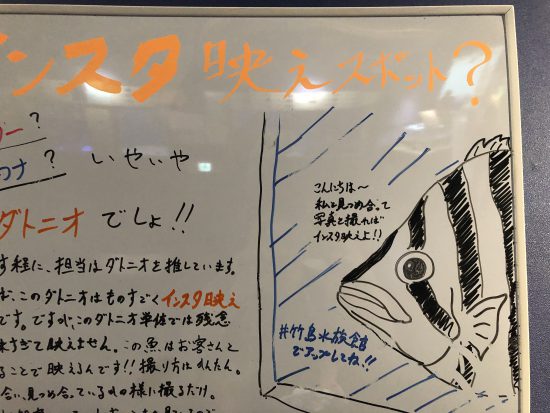 インスタ映えスポット?
ー?
ワナ? いやいや
ダトニオ でしょ!!
す程に、担当はダトニオを推しています。
、このダトニオはものすごくインスタ映え
です。ですが、このダトニオ単体では残念
すぎて映えません。この魚はお客さんと
ことで映えるんです!!撮り方はかんたん。
合い、見つめ合っているの様に撮るだけ。
こんにちは〜
私と見つめ合って
写真を撮れば
インスタ映えよ!!
#竹島水族館
でアップしてね!!